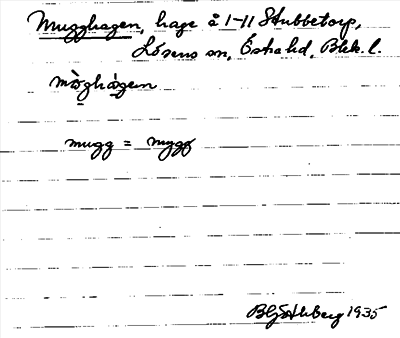 Mugghagen, hage å 1-11 Stubbetorp,
Lösens sn, Östra hd, Blek. l.
mòghágen
mugg = mygg
1935